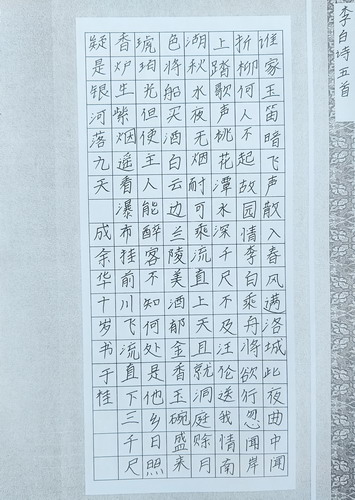 李白诗五首
谁家玉笛暗飞声散入春风满洛城此夜曲中闻
折柳何人不起故园情李白乘舟将欲行忽闻岸
上踏歌声桃花潭水深千尺不及汪伦送我情南
湖秋水夜无烟耐可乘流直上天且就洞庭赊月
色将船买酒白云边兰陵美酒郁金香玉碗盛来
琥珀光但使主人能醉客不知何处是他乡日照
香炉生紫烟遥看瀑布挂前川飞流直下三千尺
疑是银河落九天 成余华十岁书于桂